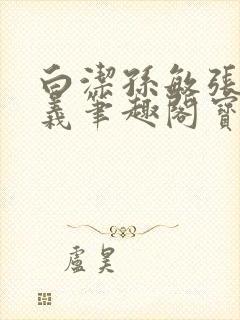 白潔孫敏張
義筆趣閣寶
盧昊